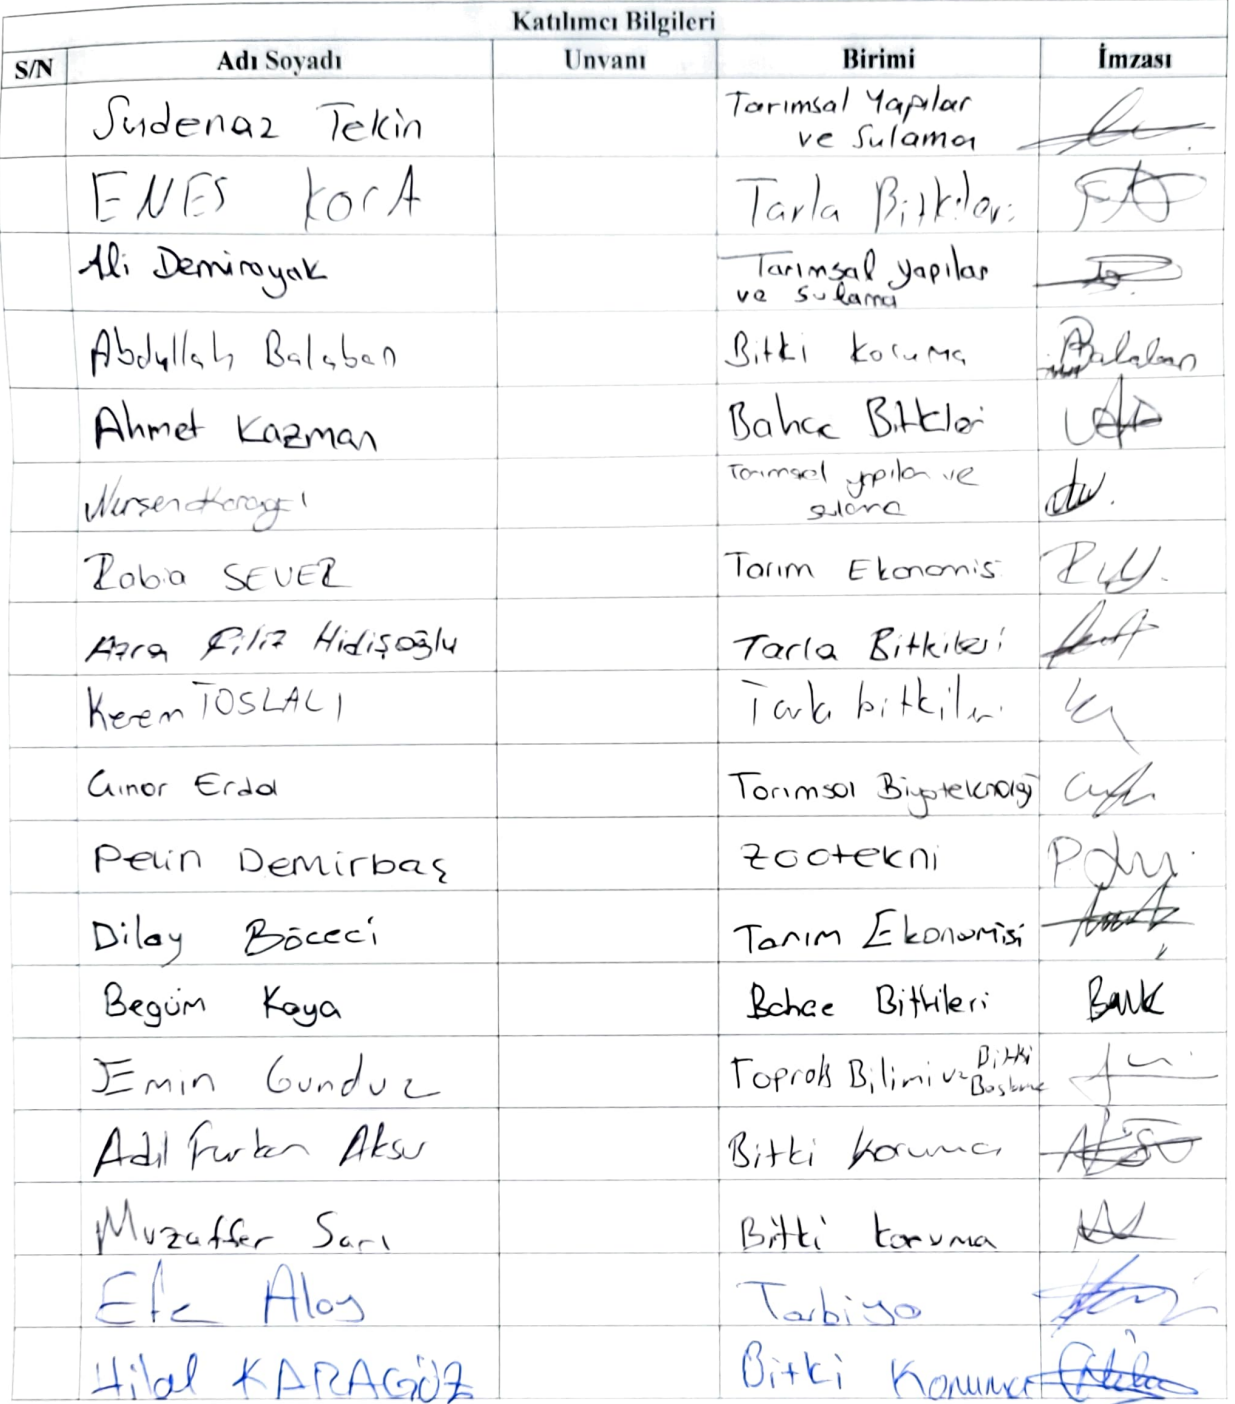 Katılımcı Bilgileri
S/N Adı Soyadı Unvanı Birimi İmzası
Sudenaz Tekin Tarımsal Yapılar
ve Sulama
ENES KorA Tarla Bitkileri
Ali Demirayak Tarımsal yapılar
ve sulama
Abdullah Balaban Bitki Koruma Balaban
Ahmet Kazman Bahce Bitkleri
Nursen Tarımsal yapılar ve
sulama
Rabia SEVER Tarım Ekonomis
Azra Filiz Hidişoğlu Tarla Bitkileri
Kerem TOSLALI Tarla bitkileri
Çınar Erdal Tarımsal Biyoteknoloji
Pelin Demirbaş Zootekni
Dilay Böceci Tarım Ekonomisi
Begüm Kaya Bahce Bitkileri
Emin Gunduz Toprak Bilimi ve Bitki
Adil Furkan Aksu Bitki Koruma
Muzaffer Sarı Bitki Koruma
Efe Alay Tarbiyo
Hilal KARAGÖZ Bitki Koruma